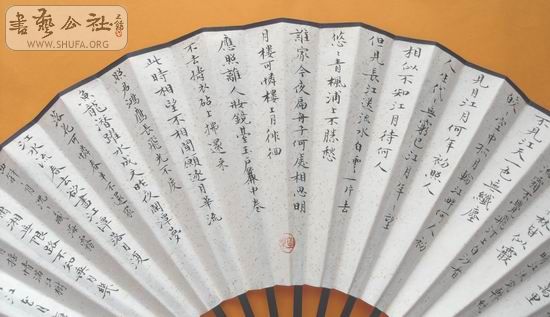 書藝公社
WWW.SHUFA.ORG
林皆似霰
不見江天一色無纖塵
空中孤月輪江畔何人初
見月江月何年初照人
人生代々無窮已江月年々望
相似不知江月待何人
但見長江送流水白雲一片去
悠々青楓浦上不勝愁
誰家今夜扁舟子何處相思明
月樓可憐樓上月徘徊
應照離人妝鏡臺玉戶簾中卷
不去搗衣砧上拂還來
此時相望不相聞願逐月華流
照君鴻雁長飛光不度
魚龍潛躍水成文昨夜閑潭夢
落花可憐春半不還家
江水流春去欲盡江潭落月復
瀟湘無限路不知乘月幾
情滿江樹